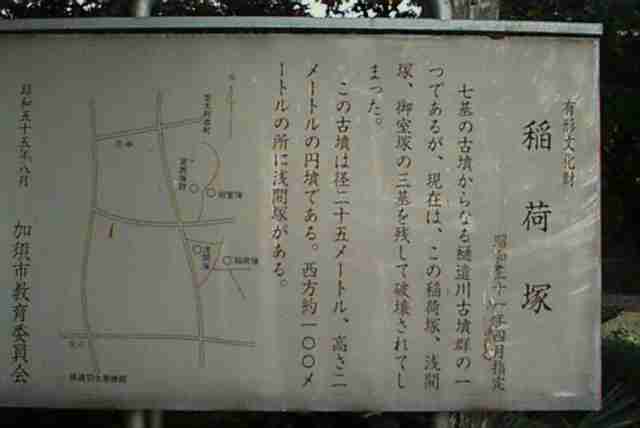 有形文化財
稲荷塚
昭和三十一年四月指定
七基の古墳からなる樋遣川古墳群の一
つであるが、現在は、この稲荷塚、浅間
塚、御室塚の三基を残して破壊されてし
まった。
この古墳は径二十五メートル、高さ二
メートルの円墳である。西方約一〇〇メ
ートルの所に浅間塚がある。
御室塚
浅間塚
稲荷塚
昭和五十五年八月
加須市教育委員会